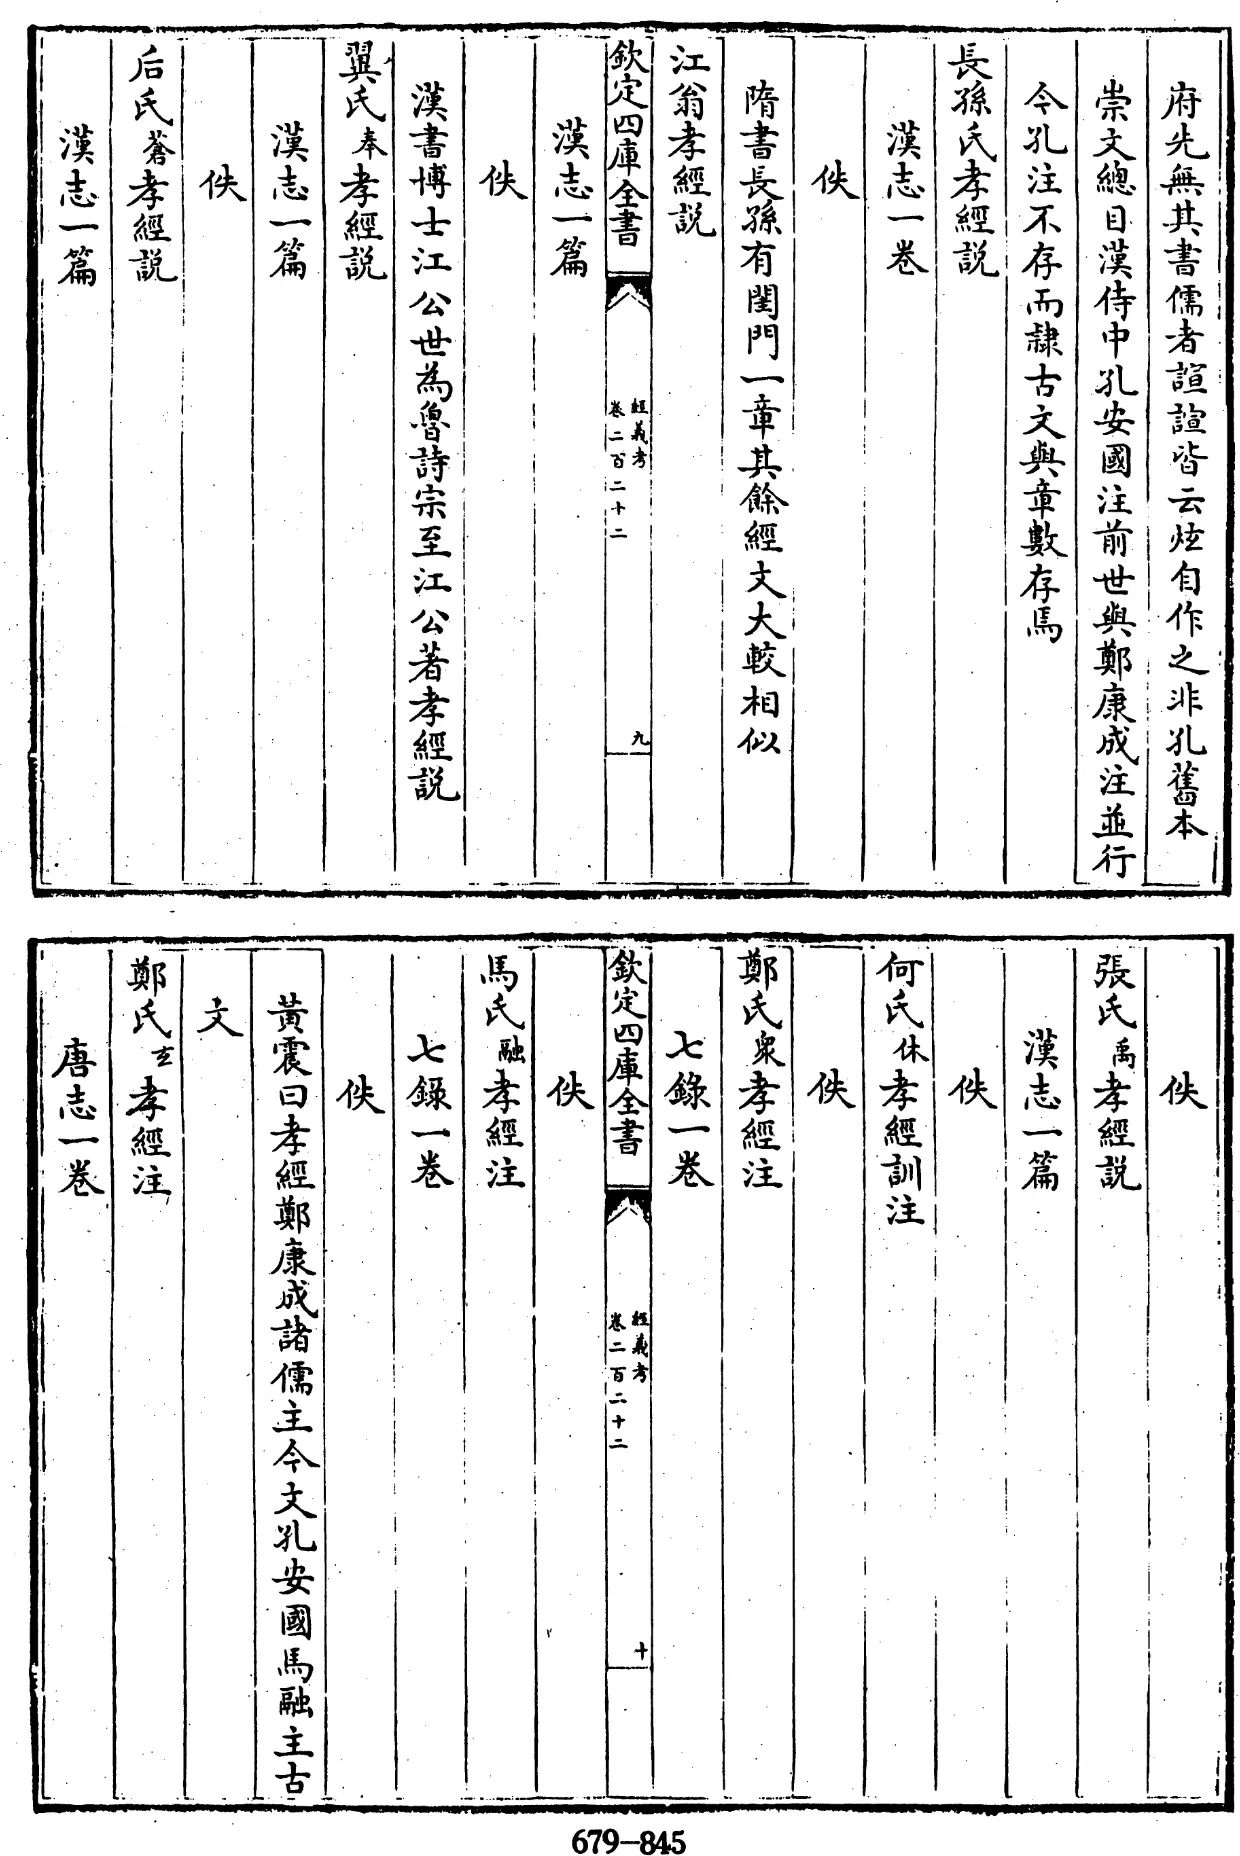 府先無其書儒者諠諠皆云炫自作之非孔舊本
崇文總目漢侍中孔安國注前世與鄭康成注並行
今孔注不存而隷古文與章數存焉
長孫氏孝經説
漢志一卷
佚
隋書長孫有閨門一章其餘經文大較相似
江翁孝經説
欽定四庫全書
經義考
卷二百二十二
九
漢志一篇
佚
漢書博士江公世為魯詩宗至江公著孝經説
翼氏奉孝經説
漢志一篇
佚
后氏蒼孝經説
漢志一篇
佚
張氏禹孝經説
漢志一篇
佚
何氏休孝經訓注
佚
鄭氏衆孝經注
七錄一卷
欽定四庫全書
經義考
卷二百二十二
十
佚
馬氏融孝經注
七錄一卷
佚
黃震曰孝經鄭康成諸儒主今文孔安國馬融主古
文
鄭氏玄孝經注
唐志一卷
679-845